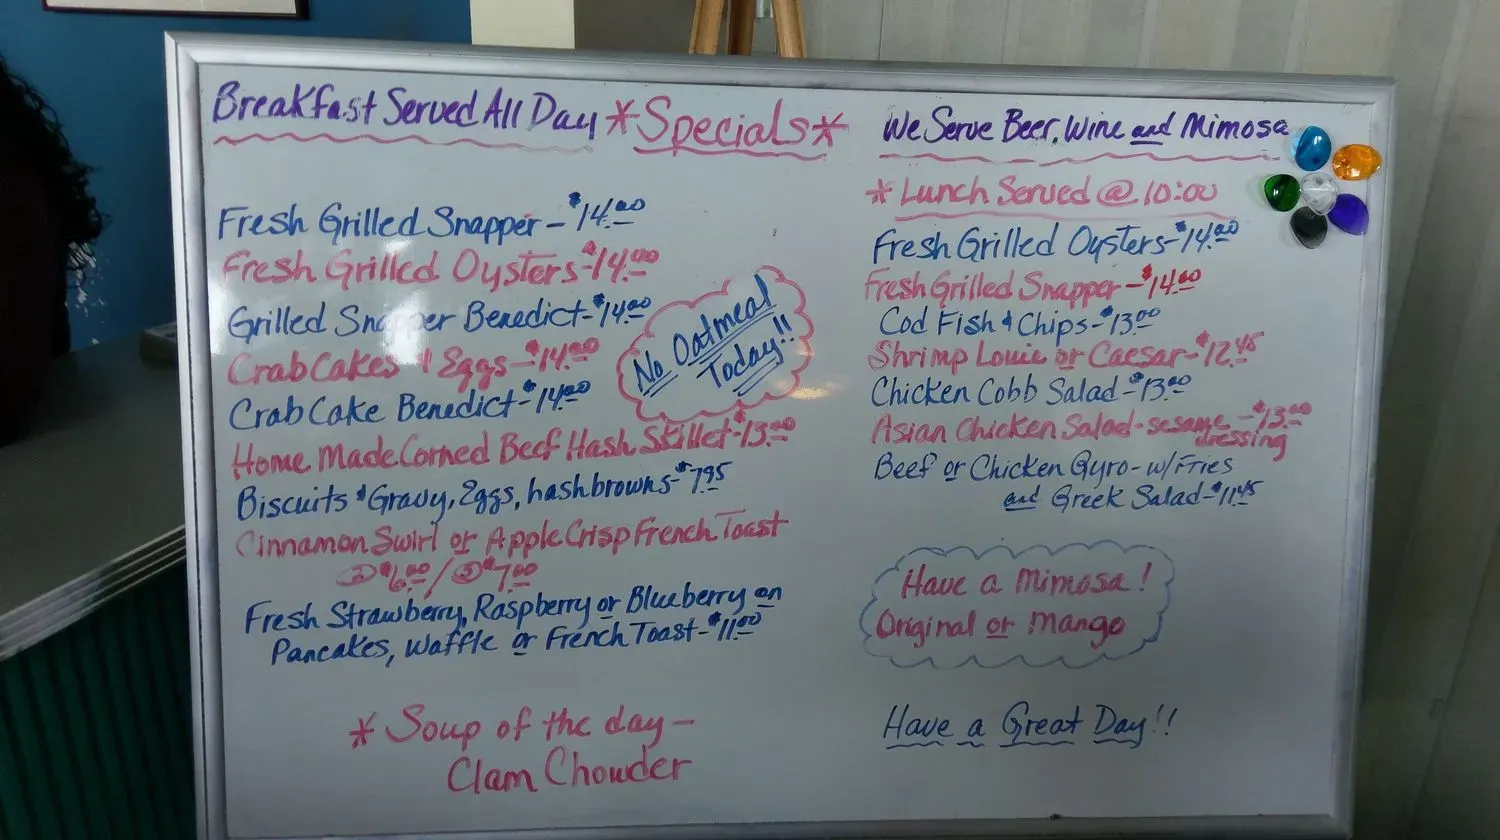 Breakfast Served All Day *Specials*
Fresh Grilled Snapper - $14.00
Fresh Grilled Oysters - $14.00
Grilled Snapper Benedict - $14.00
Crab Cakes & Eggs - $14.00
Crab Cake Benedict - $14.00
Home Made Corned Beef Hash Skillet - $13.00
Biscuits & Gravy, Eggs, hashbrowns - $7.95
Cinnamon Swirl or Apple Crisp French Toast
② $6.00 / ③ $7.00
Fresh Strawberry, Raspberry or Blueberry on
Pancakes, Waffle or French Toast - $11.00
No Oatmeal
Today!!
* Soup of the day -
Clam Chowder
We Serve Beer, Wine and Mimosa
* Lunch Served @ 10:00
Fresh Grilled Oysters - $14.00
Fresh Grilled Snapper - $14.00
Cod Fish & Chips - $13.00
Shrimp Louie or Caesar - $12.45
Chicken Cobb Salad - $13.00
Asian Chicken Salad - sesame - $13.00
dressing
Beef or Chicken Gyro - w/ Fries
and Greek Salad - $11.45
Have a Mimosa!
Original or Mango
Have a Great Day!!